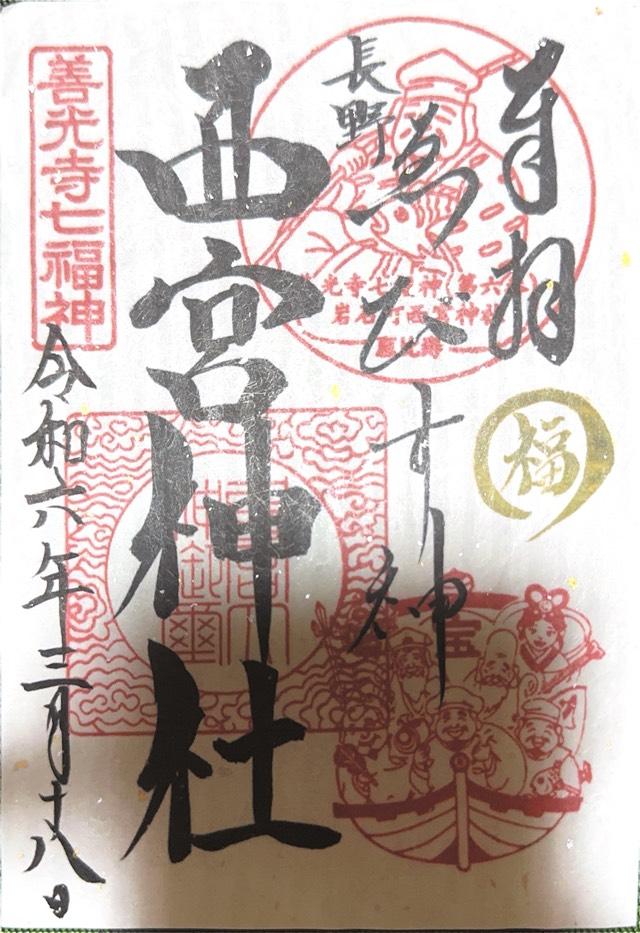 奉拝
長野
ゑびす神
善光寺七福神 第六
岩石町西宮神社
恵比寿
福
宝
西宮神社
善光寺七福神
令和六年三月十八日